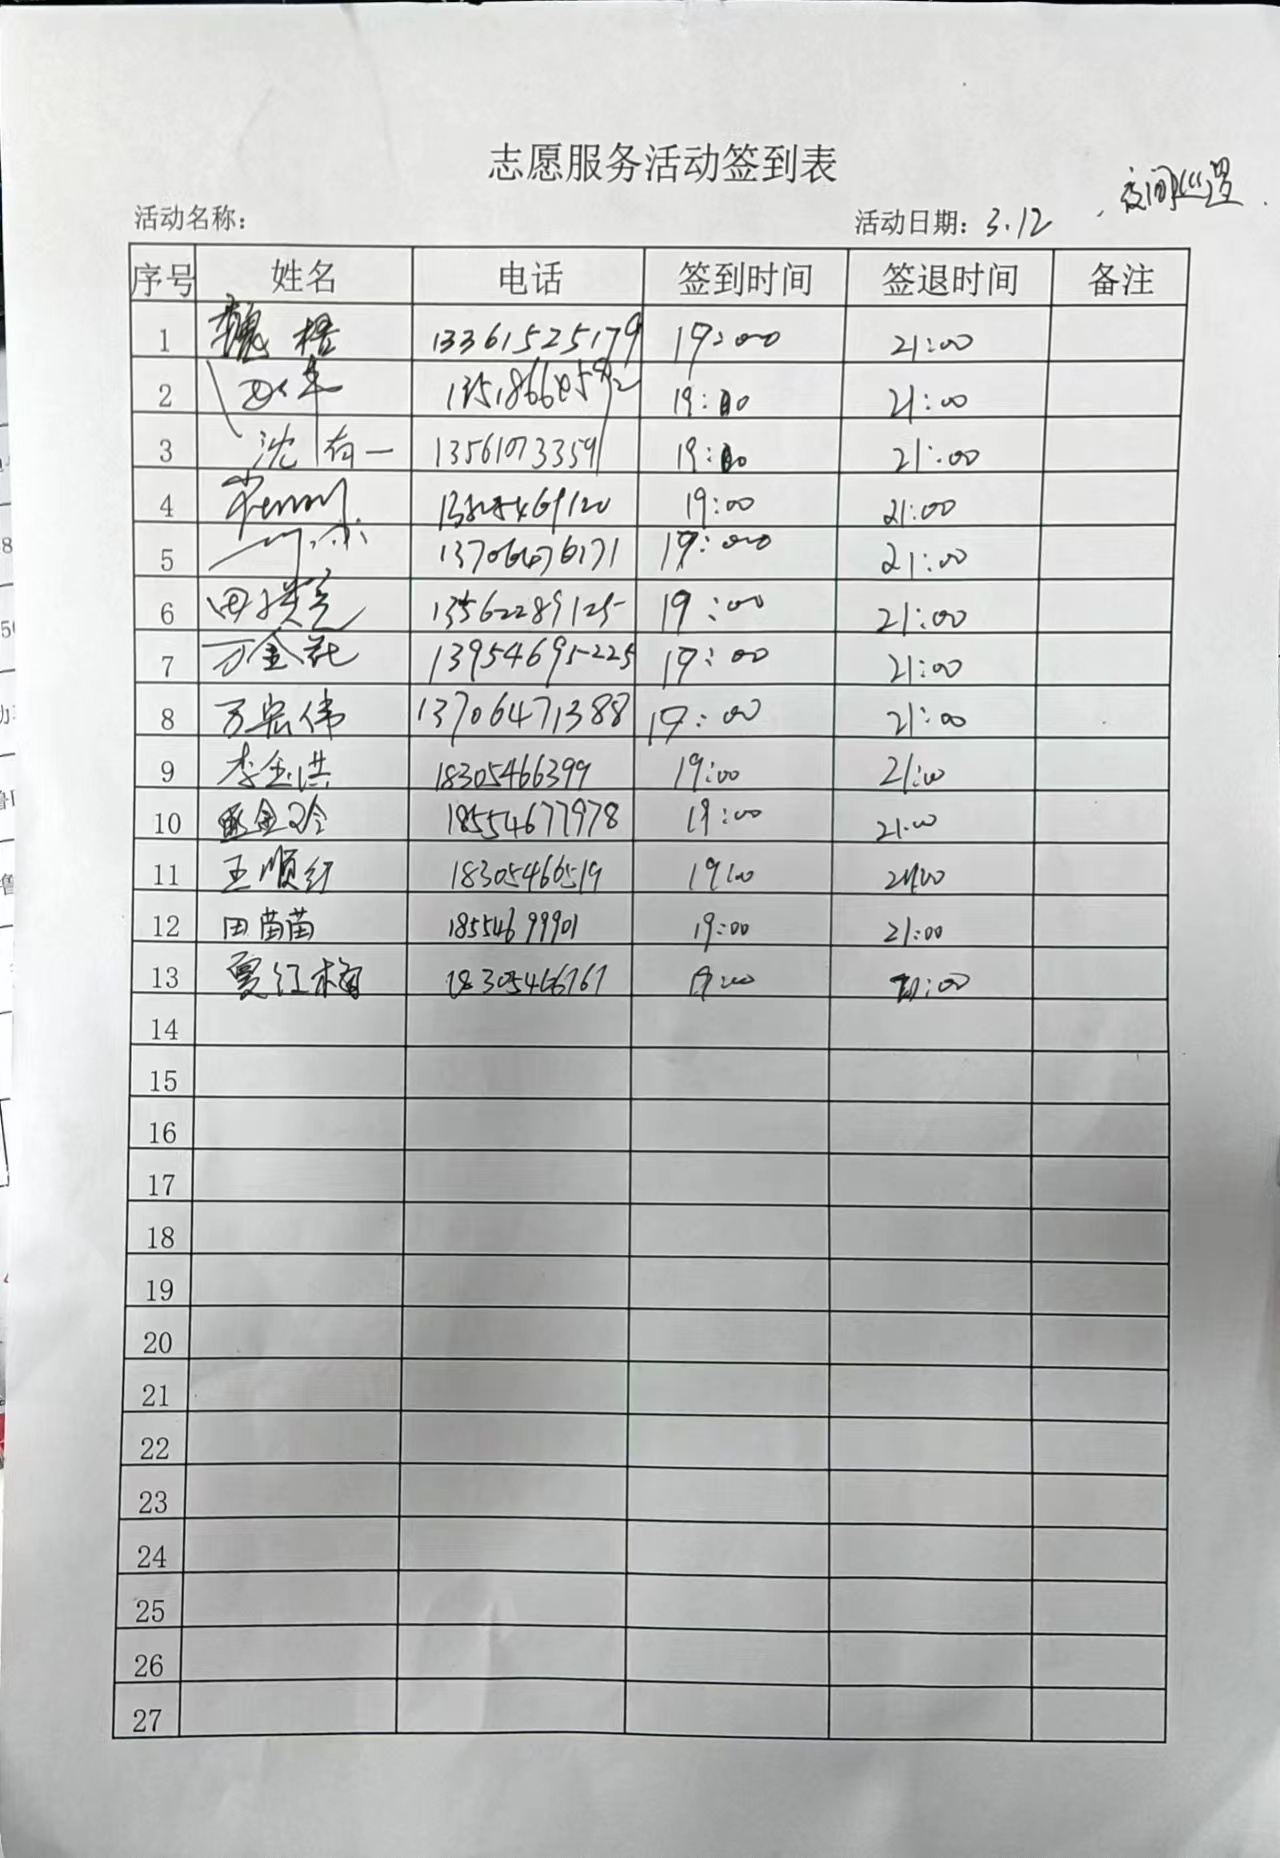 志愿服务活动签到表
夜间巡逻
活动名称： 活动日期：3.12
序号 姓名 电话 签到时间 签退时间 备注
1 魏 13361525179 19:00 21:00
2 19:00 21:00
3 沈有一 13561073359 19:00 21:00
4 19:00 21:00
5 19:00 21:00
6 田 13562289125 19:00 21:00
7 万金花 13954695225 19:00 21:00
8 万宏伟 13706471388 19:00 21:00
9 李金洪 18305466399 19:00 21:00
10 18554677978 19:00 21:00
11 王顺红 18305466519 19:00 21:00
12 田苗苗 18554699901 19:00 21:00
13 贾红梅 18305466767 19:00 21:00
14
15
16
17
18
19
20
21
22
23
24
25
26
27